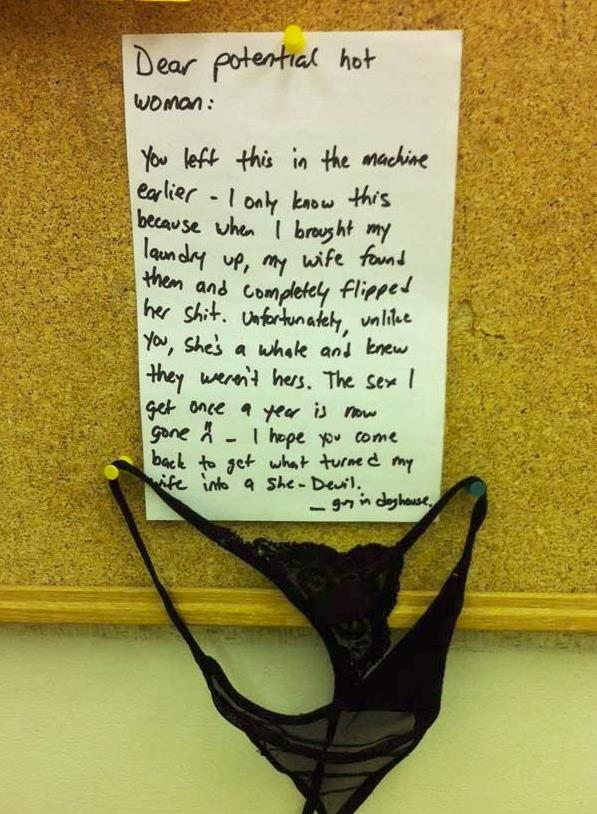 Dear potential hot
woman:
You left this in the machine
earlier - I only know this
because when I brought my
laundry up, my wife found
them and completely flipped
her shit. Unfortunately, unlike
you, she's a whale and knew
they weren't hers. The sex I
get once a year is now
gone :( - I hope you come
back to get what turned my
wife into a She-Devil.
- guy in doghouse.